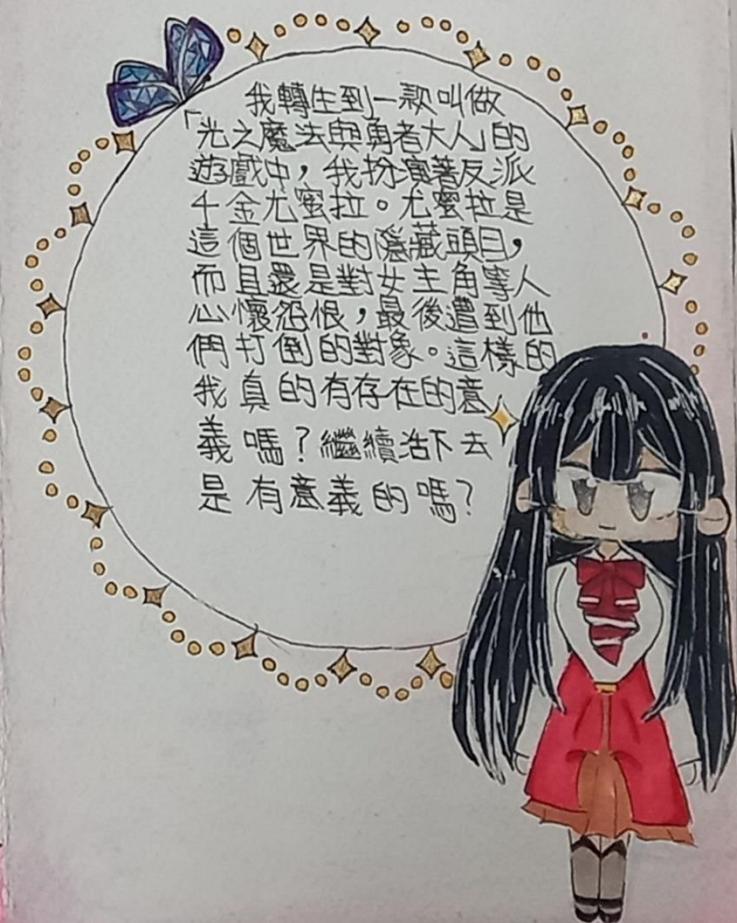 我轉生到一款叫做
「光之魔法與勇者大人」的
遊戲中，我扮演著反派
千金尤蜜拉。尤蜜拉是
這個世界的隱藏頭目，
而且還是對女主角等人
心懷怨恨，最後遭到他
們打倒的對象。這樣的
我真的有存在的意
義嗎？繼續活下去
是有意義的嗎？